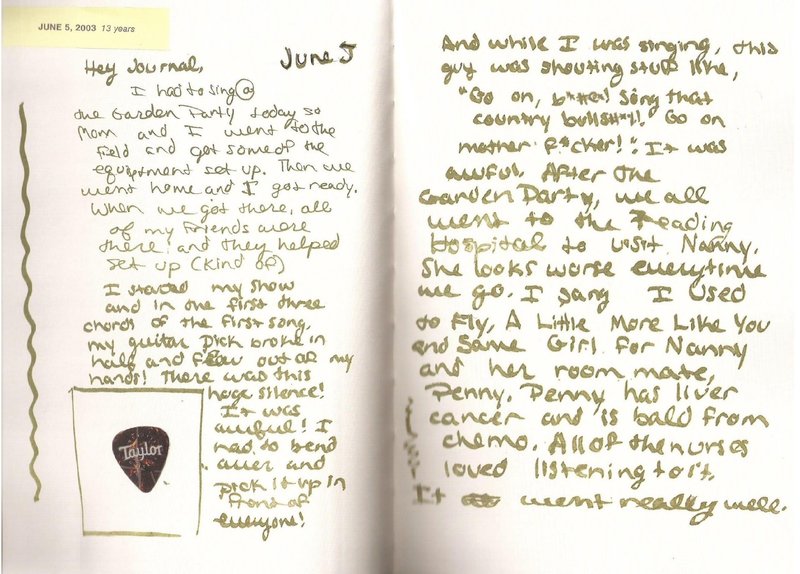 JUNE 5, 2003 13 years
June 5
Hey Journal,
I had to sing @
the Garden Party today so
Mom and I went to the
field and got some of the
equiptment set up. Then we
went home and I got ready.
When we got there, all
of my friends were
there! and they helped
set up (kind of)
I started my show
and in the first three
chords of the first song,
my guitar pick broke in
half and flew out of my
hands! There was this
huge silence!
It was
awful! I
had to bend
over and
pick it up in
front of
everyone!
Taylor
And while I was singing, this
guy was shouting stuff like,
"Go on, b**ch! Song that
country bullsh*t! Go on
mother f*cker!". It was
awful. After the
Garden Party, we all
went to the Reading
Hospital to visit Nanny.
She looks worse everytime
we go. I sang I Used
to Fly, A Little More Like You
and Same Girl for Nanny
and her room mate,
Penny. Penny has liver
cancer and is bald from
chemo. All of the nurses
loved listening to it.
It went really well.